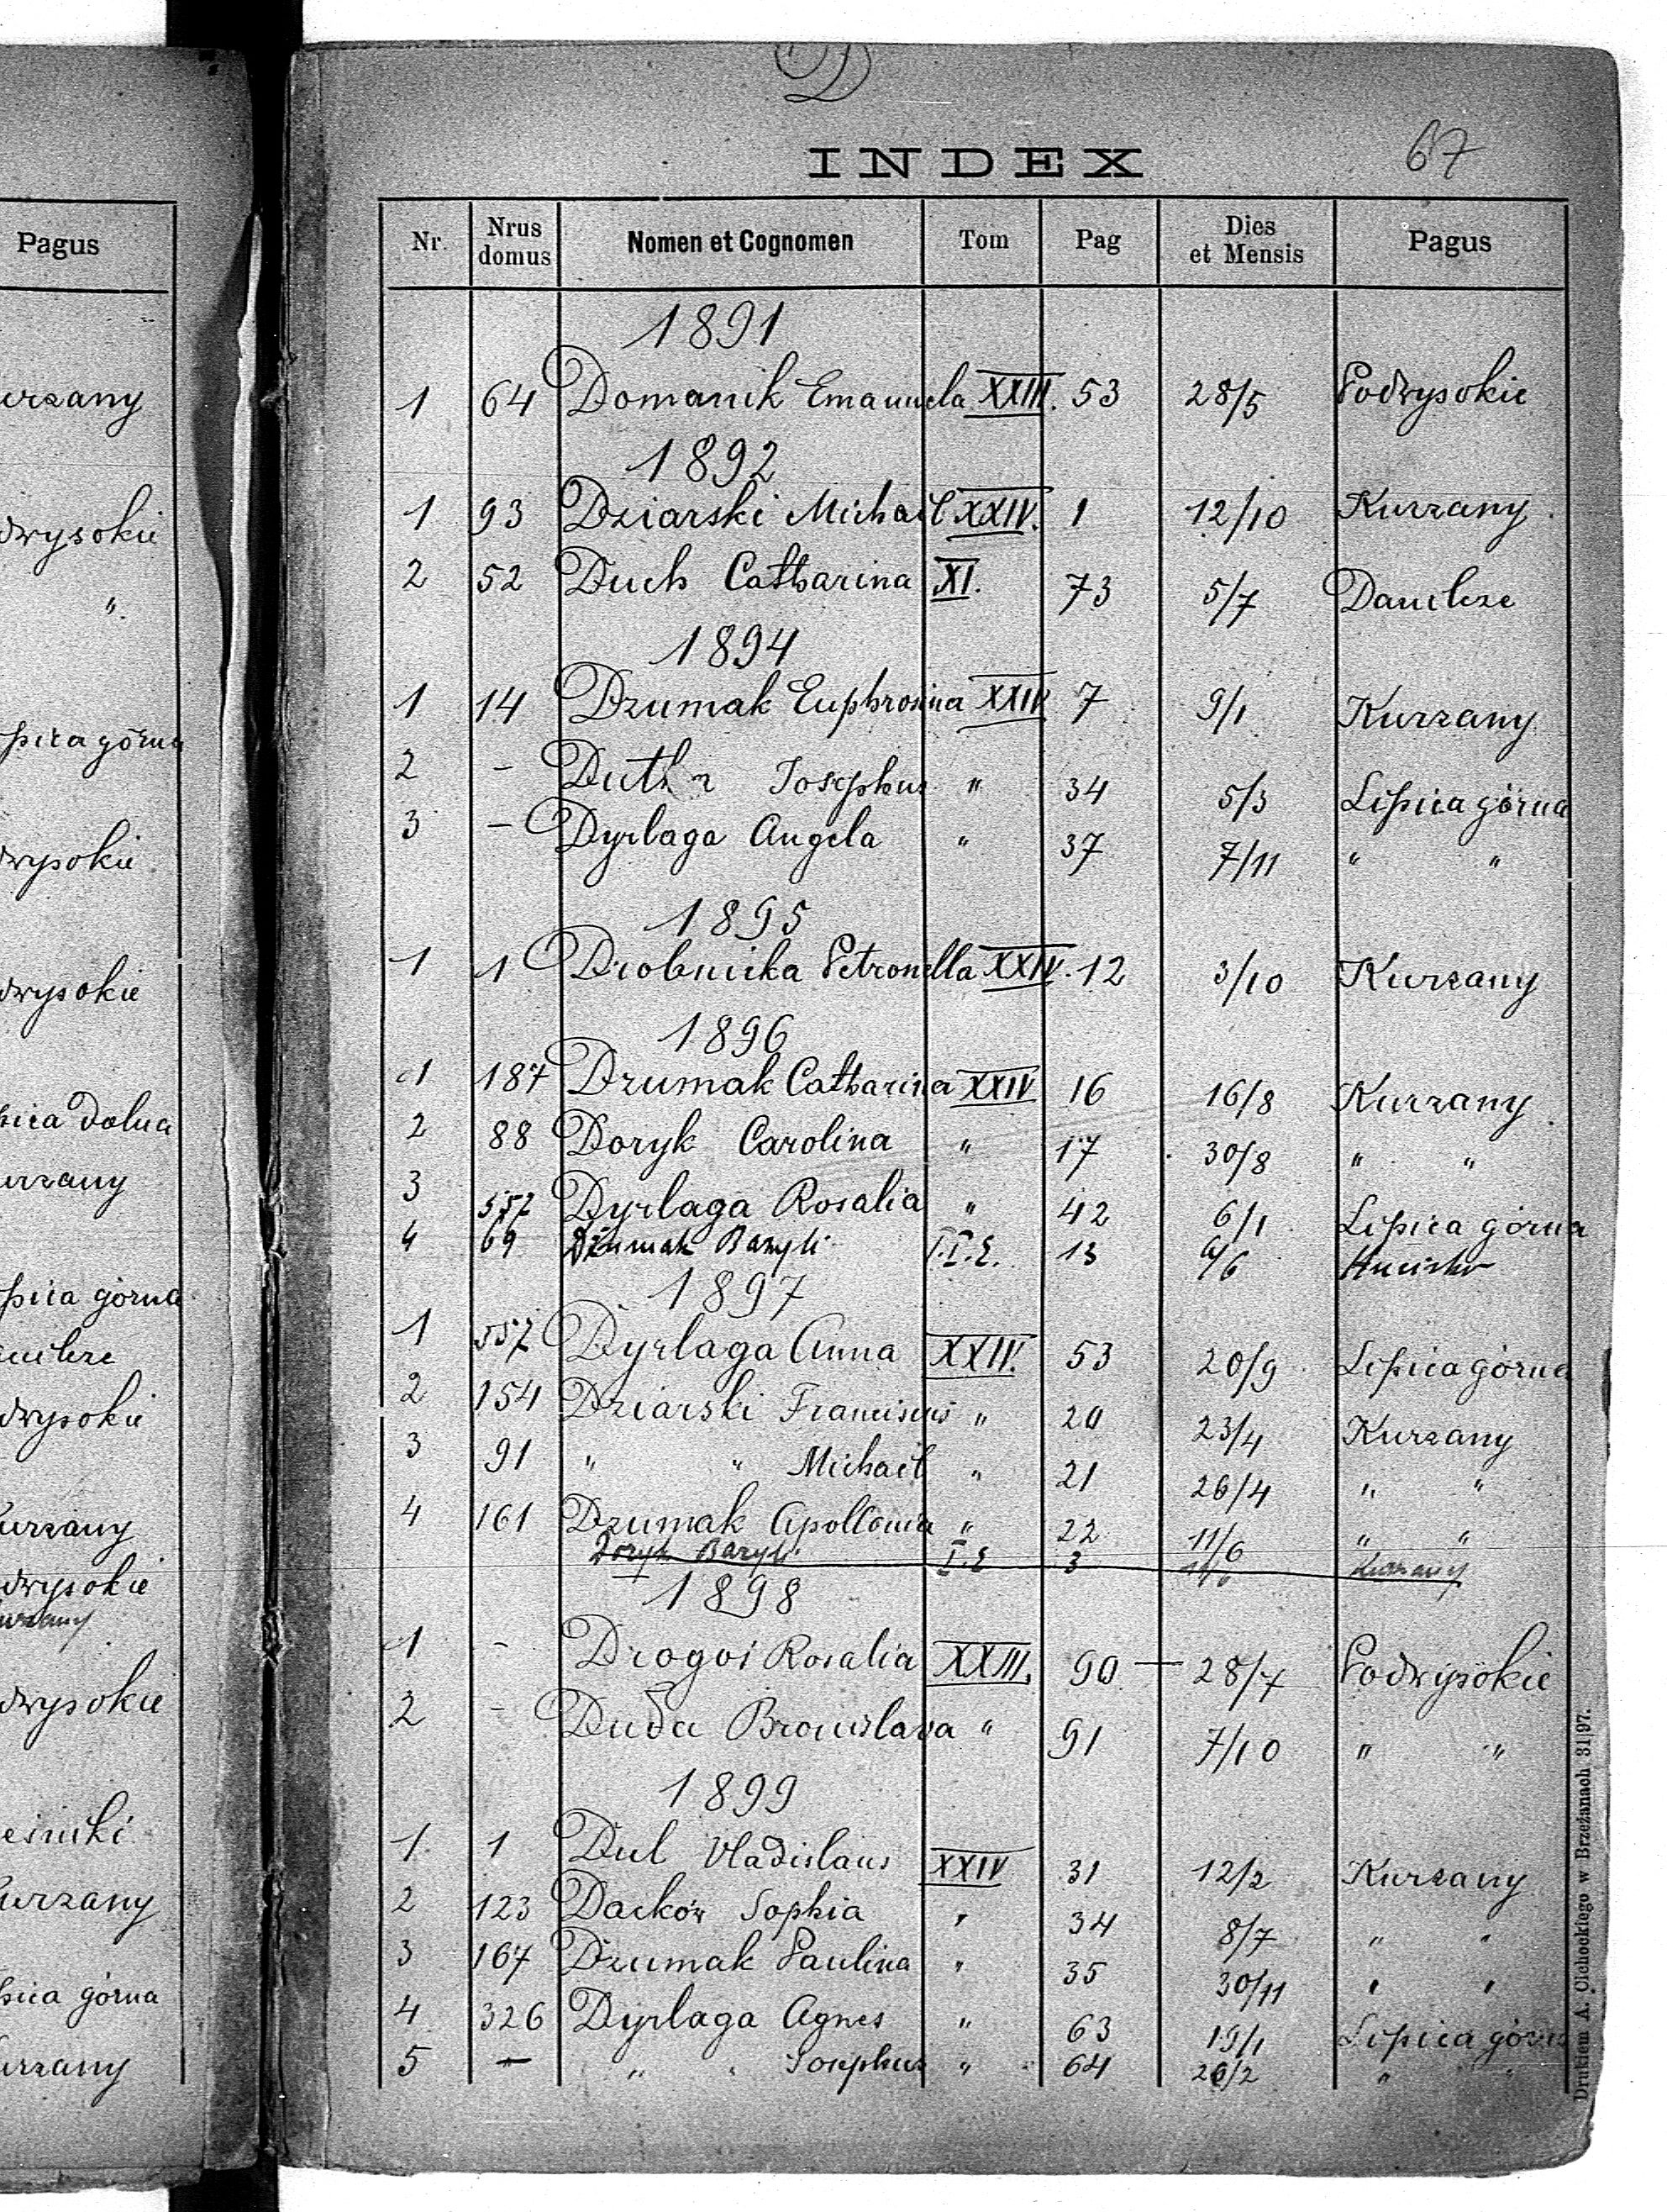 Pagus
urzany
dwysokie
"
pica górna
dwysokie
dwysokie
pica dolna
urzany
pica górna
dwysokie
Kurzany
dwysokie
urzany
dwysokie
Kurzany
pica górna
urzany
D
INDEX
67
Nr. Nrus domus Nomen et Cognomen Tom Pag Dies et Mensis Pagus
1891
1 64 Domanik Emanuela XXIII. 53 28/5 Podwysokie
1892
1 93 Dziarski Michael XXIV. 1 12/10 Kurzany
2 52 Duch Catharina XI. 73 5/7 Danilcze
1894
1 14 Dzumak Euphrosina XXIV 7 9/1 Kurzany
2 - Josephus " 34 5/3 Lipica górna
3 - Dyrlaga Angela " 37 7/11 " "
1895
1 1 Drobnicka Petronella XXIV. 12 3/10 Kurzany
1896
1 187 Dzumak Catharina XXIV 16 16/8 Kurzany
2 88 Doryk Carolina " 17 30/8 " "
3 557 Dyrlaga Rosalia " 42 6/1 Lipica górna
4 69 Dzumak Bazyli 13
1897
1 557 Dyrlaga Anna XXIV. 53 20/9 Lipica górna
2 154 Dziarski Franciscus " 20 23/4 Kurzany
3 91 " " Michael " 21 26/4 " "
4 161 Dzumak Apollonia " 22 11/6 " "
Doryk Bazyli 3 Kurzany
1898
1 - Rosalia XXIII. 90 — 28/7 Podwysokie
2 - Duda Bronislava " 91 7/10 " "
1899
1. 1 Dul Vladislaus XXIV 31 12/2 Kurzany
2 123 Dacków Sophia " 34 8/7 " "
3 167 Dzumak Paulina " 35 30/11 " "
4 326 Dyrlaga Agnes " 63 19/1 Lipica górna
5 — " " Josephus " 64 26/2 " "
Drukiem A. Cichockiego w Brzeżanach 31|97.